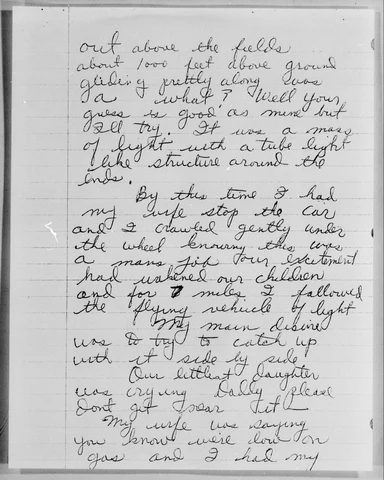 out above the fields
about 1000 feet above ground
gliding prettly along was
a what? Well your
guess is good as mine but
I'll try. It was a mass
of light with a tube light
like structure around the
ends.
By this time I had
my wife stop the car
and I crawled gently under
the wheel knowing this was
a mans job our excitement
had wakened our children
and for 7 miles I followed
the flying vehicle of light
My main desire
was to try to catch up
with it side by side
Our littlest daughter
was crying Daddy please
Dont get near it —
My wife was saying
you know we're low on
gas and I had my